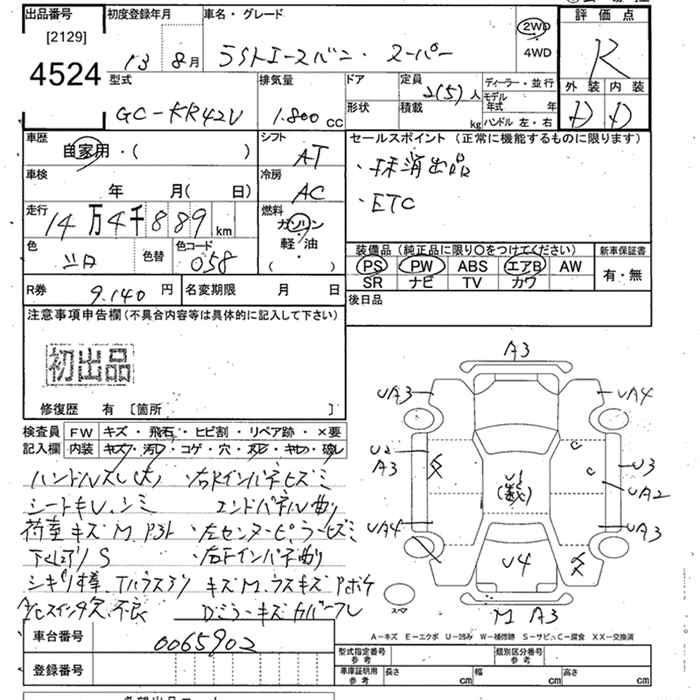 出品番号 初度登録年月 車名・グレード 評価点
[2129]
4524
13 8月 ライトエースバン・スーパー
2WD
4WD
R
型式 排気量 ドア 定員 ディーラー・並行 外装 内装
GC-KR42V 1.800 cc 2(5)人 モデル年式 年
形状 積載 kg ハンドル 左・右 D D
車歴 シフト セールスポイント(正常に機能するものに限ります)
自家用・( ) AT ・抹消出品
車検 冷房 ・ETC
年 月( 日) AC
走行 燃料
14万4千889km ガソリン
軽・油
( )
色 色替 色コード
シロ 058
装備品(純正品に限り○をつけてください) 新車保証書
PS PW ABS エアB AW 有・無
SR ナビ TV カワ
R券 9.140円 名変期限 月 日 後日品
注意事項申告欄(不具合内容等は具体的に記入して下さい)
初出品
修復歴 有 〔箇所 〕
検査員 FW キズ・飛石・ヒビ割・リペア跡・×要
記入欄 内装 キズ・汚レ・コゲ・穴・スレ・キレ・破レ
ハンドルスレ(大) ・右Rインパネヒズミ
シートキレ、シミ エンドパネル曲り
荷室キズM.
・左センターピラーヒズミ
下廻りS
キズM.
A3
UA3 UA4
U2
A3
U1
U3
UA2
UA4 UA3
U4
スペア
M A3
A-キズ E-エクボ U-凹み W-補修跡 S-サビ C-腐食 XX-交換済
車台番号 0065902
登録番号
型式指定番号 参考 類別区分番号 参考
車庫証明用 参考 長さ cm 幅 cm 高さ cm